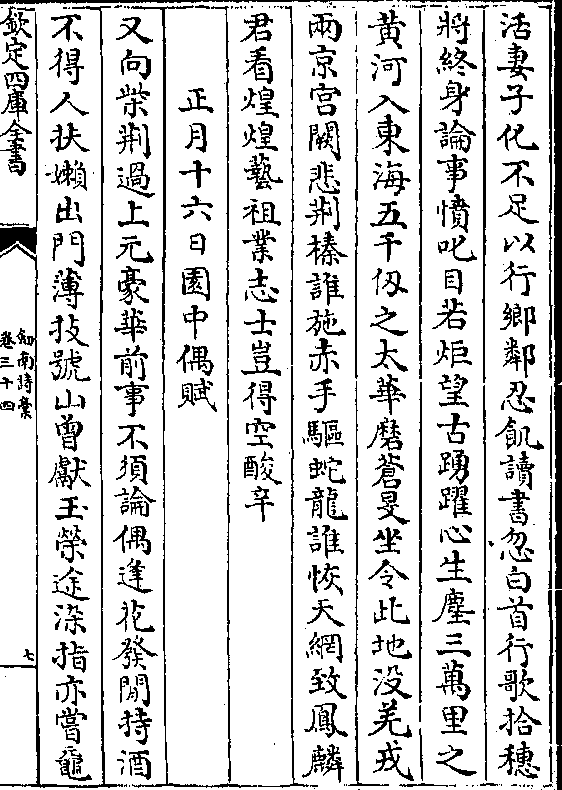 活妻子化不足以行鄉鄰忍飢讀書忽白首行歌拾穗
將終身論事憤叱目若炬望古踴躍心生塵三萬里之
黄河入東海五千仞之太華磨蒼旻坐令此地没羌戎
兩京宫闕悲荆榛誰施赤手驅蛇龍誰恢天網致鳳麟
君看煌煌藝祖業志士豈得空酸辛
正月十六日園中偶賦
又向柴荆過上元豪華前事不須論偶逢花發閒持酒
不得人扶嬾出門薄技號山曾獻玉榮途染指亦嘗黿
欽定四庫全書
劍南詩稾
卷三十四
七